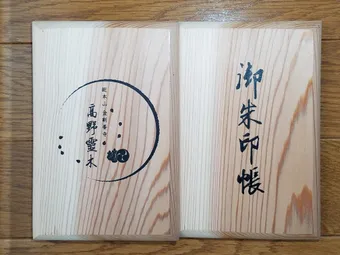 総本山金剛峯寺
高野霊木
御朱印帳